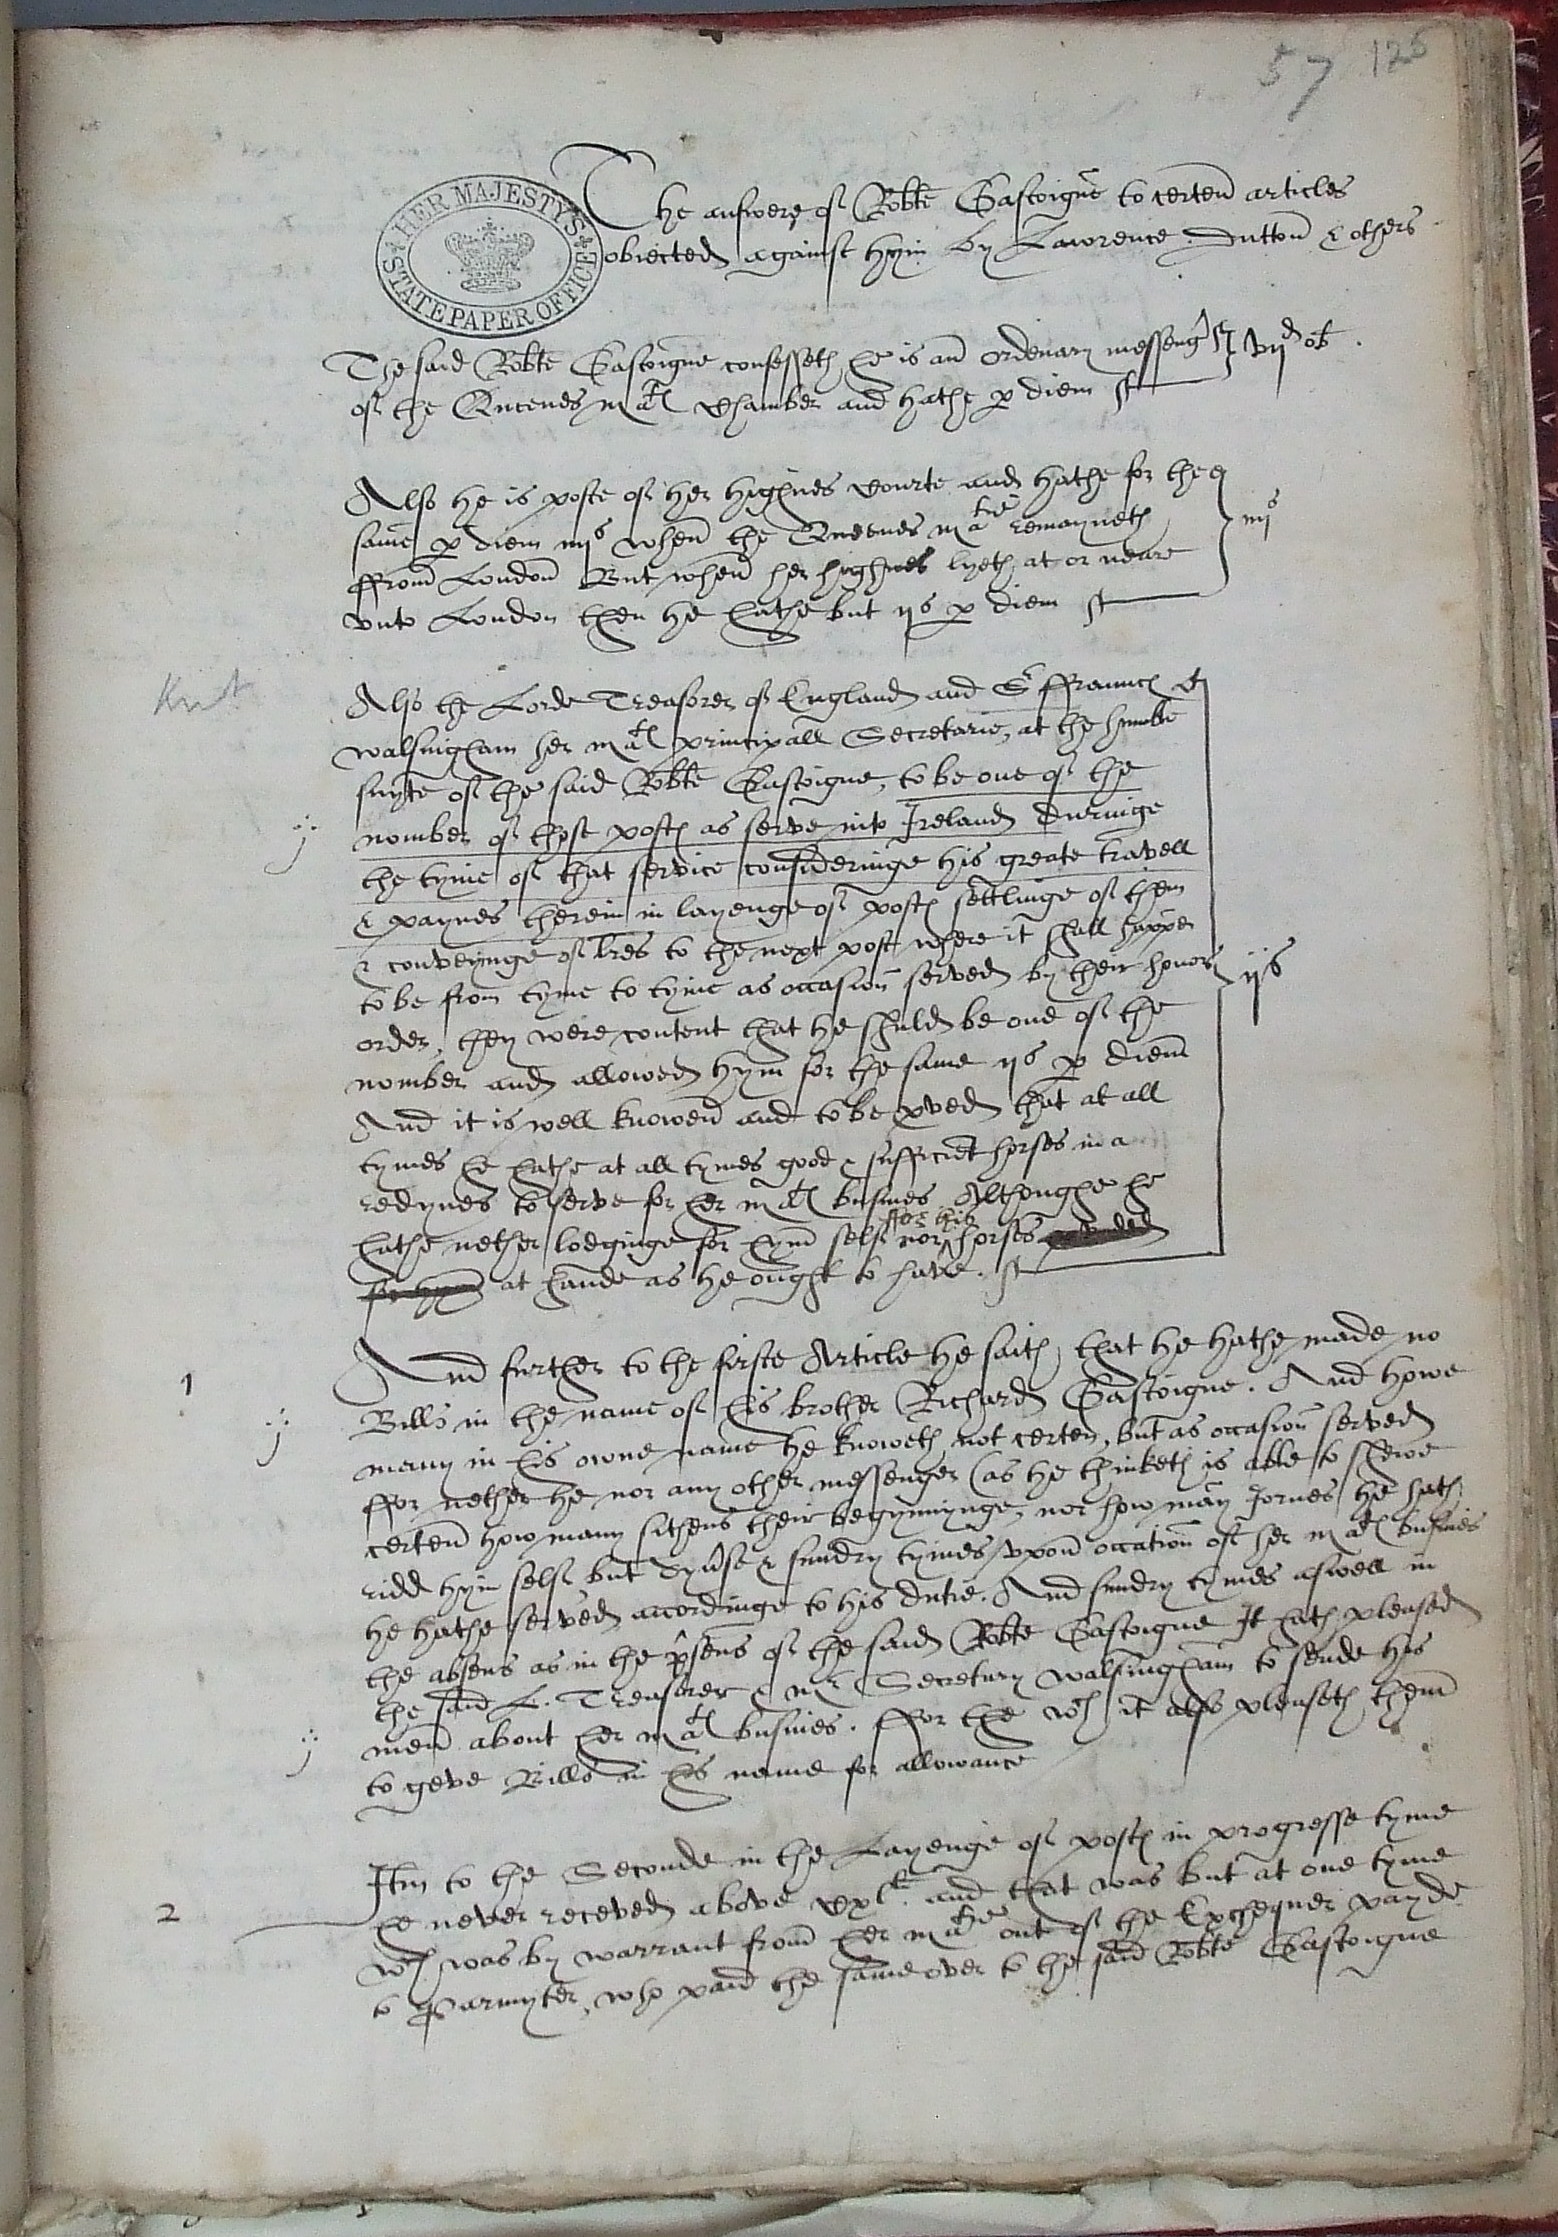 57 126
HER MAJESTY'S STATE PAPER OFFICE
The answere of Robte Gascoigne to certen articles
obiected against hym by Lawrence Dutton & others
The said Robte Gascoigne confesseth he is an ordenary messeng^r vij^d ob.
of the Queenes ma^ts Chamber and hathe p diem
Also he is poste of her highnes Courte and hathe for the
same p diem iiij^s when the Queenes ma^tie remayneth iiij^s
ffrom London But when her highnes lyeth at or neare
vnto London then he hathe but ij^s p diem
Also the Lorde Treasorer of England and S^r ffraunc^s
walsingham her ma^ts principall Secretarie, at the humble
suyte of the said Robte Gascoigne, to be one of the
j nomber of those post^s as serve into Ireland duringe
the tyme of that service consideringe his greate travell
& paynes therein in layenge of post^s settlinge of them
& conveyinge of lres to the next post where it shall happen
to be from tyme to tyme as occasion served by their honors ij^s
order, they were content that he shuld be one of the
nomber and allowed hym for the same ij^s p diem
And it is well knowen and to be pved that at all
tymes he hathe at all tymes good & sufficient horses in a
redynes to serve for her ma^ts busines Althoughe he
hathe nether lodginge for hym self nor for his horses
for hym at hande as he ought to have.
1 And further to the firste Article he saith, that he hathe made no
j Bills in the name of his brother Richard Gascoigne. And howe
many in his owne name he knoweth not certen, but as occasion served
ffor nether he nor any other messenger (as he thinketh is able to shewe
certen how many sithens their begynnynge, nor how many Jorneis he hath
ridd hym self but dyvse & sundry tymes vpon occation of her ma^ts busines
he hathe served accordinge to his dutie. And sundry tymes aswell in
the absens as in the psens of the said Robte Gascoigne It hath pleased
the said L. Treasorer & m^r Secretary walsingham to sende his
j men about her ma^ts busines. ffor the w^ch it also pleaseth them
to geve Bills in his name for allowance
2 Itm to the Seconde in the Layenge of post^s in progresse tyme
he never receved above xx^li. and that was but at one tyme
w^ch was by warrant from her ma^tie out of the Exchequer payde
to Parmyter, who paid the same over to the said Robte Gascoigne